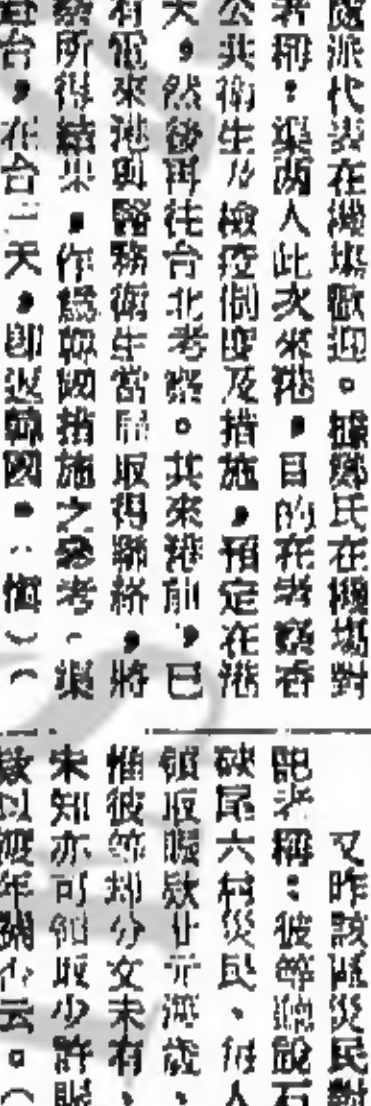 處派代表在機場歡迎。據鄭氏在機場對
者稱：渠兩人此次來港，目的在考察香
公共衛生及檢疫制度及措施，預定在港
天，然後再往台北考察。其來港前，已
有電來港與醫務衛生當局取得聯絡，將
察所得結果，作為韓國措施之參考。渠
赴台，在台三天，即返韓國。（慎）（
又昨該區災民對
記者稱：彼等聽說石
硤尾六村災民、每人
領取賑款廿元渡歲、
惟彼等却分文未有、
未知亦可領取少許賑
款以渡年關否云。（